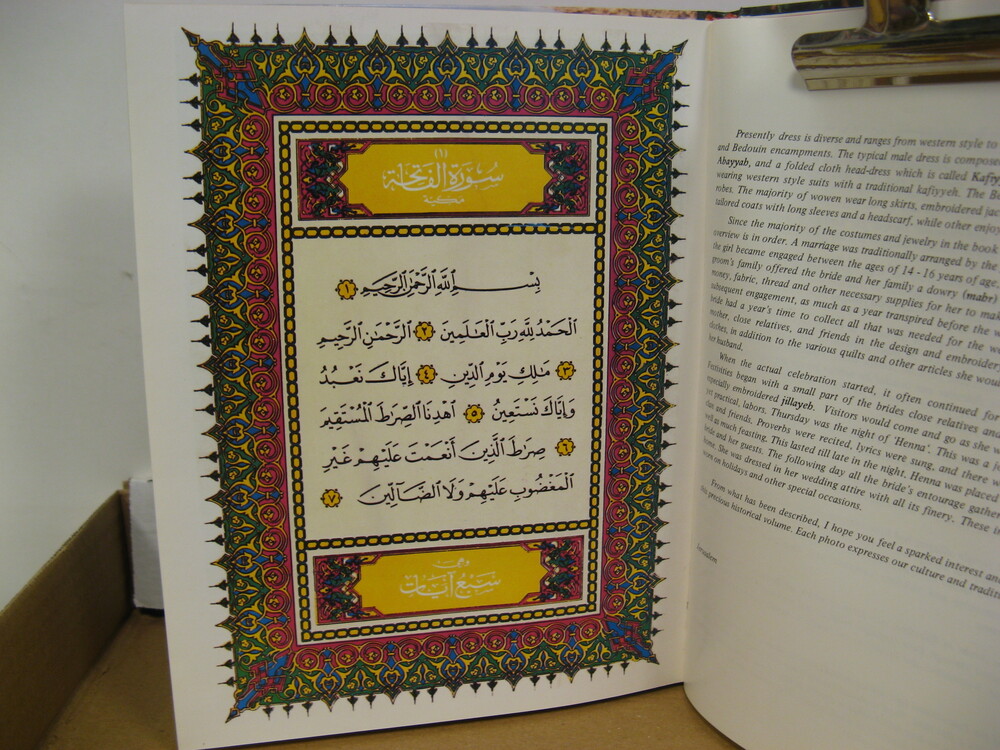 (١)
سورة الفاتحة
مكية
بِسْمِ ٱللَّهِ ٱلرَّحْمَٰنِ ٱلرَّحِيمِ ١
ٱلْحَمْدُ لِلَّهِ رَبِّ ٱلْعَٰلَمِينَ ٢ ٱلرَّحْمَٰنِ ٱلرَّحِيمِ
٣ مَٰلِكِ يَوْمِ ٱلدِّينِ ٤ إِيَّاكَ نَعْبُدُ
وَإِيَّاكَ نَسْتَعِينُ ٥ ٱهْدِنَا ٱلصِّرَٰطَ ٱلْمُسْتَقِيمَ
٦ صِرَٰطَ ٱلَّذِينَ أَنْعَمْتَ عَلَيْهِمْ غَيْرِ
ٱلْمَغْضُوبِ عَلَيْهِمْ وَلَا ٱلضَّآلِّينَ ٧
وهي
سبع آيات
Presently dress is diverse and ranges from western style to
and Bedouin encampments. The typical male dress is compose
Abayyah, and a folded cloth head-dress which is called Kafiy
wearing western style suits with a traditional kafiyyeh. The B
robes. The majority of wowen wear long skirts, embroidered ja
tailored coats with long sleeves and a headscarf, while other enjoy
Since the majority of the costumes and jewelry in the book
overview is in order. A marriage was traditionally arranged by the
the girl became engaged between the ages of 14 - 16 years of age,
groom's family offered the bride and her family a dowry (mahr)
money, fabric, thread and other necessary supplies for her to mak
subsequent engagement, as much as a year transpired before the w
bride had a year's time to collect all that was needed for the w
mother, close relatives, and friends in the design and embroider
clothes, in addition to the various quilts and other articles she wou
her husband.
When the actual celebration started, it often continued for
Festivities began with a small part of the brides close relatives and
especially embroidered jillayeh. Visitors would come and go as she w
yet practical, labors. Thursday was the night of 'Henna'. This was a
clan and friends. Proverbs were recited, lyrics were sung, and there w
well as much feasting. This lasted till late in the night. Henna was placed
bride and her guests. The following day all the bride's entourage gathe
home. She was dressed in her wedding attire with all its finery. These
worn on holidays and other special occasions.
From what has been described, I hope you feel a sparked interest an
this precious historical volume. Each photo expresses our culture and traditi
Jerusalem